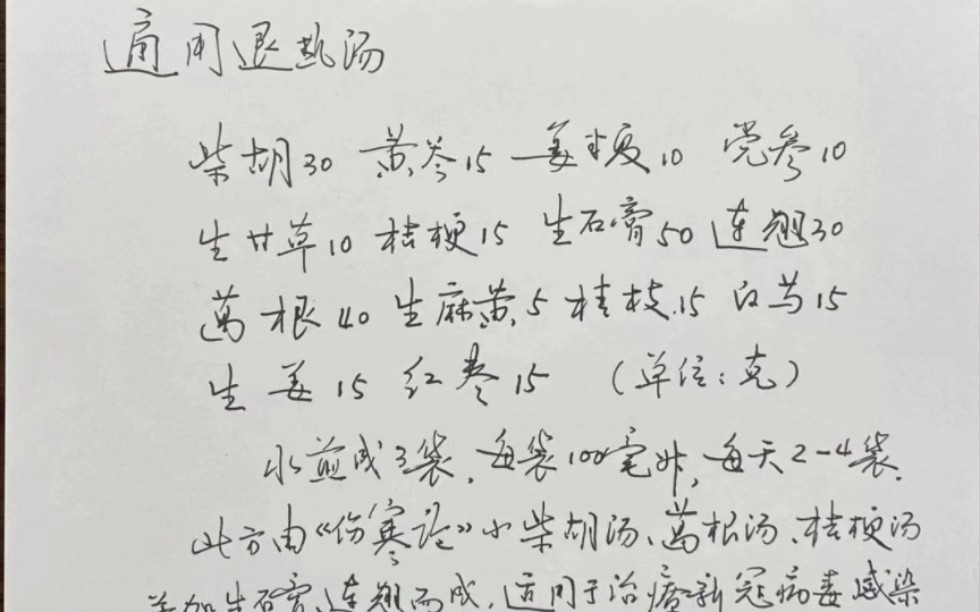 通用退热汤
柴胡30 黄芩15 姜半夏10 党参10
生甘草10 桔梗15 生石膏50 连翘30
葛根40 生麻黄5 桂枝15 白芍15
生姜15 红枣15 (单位:克)
水煎成3袋,每袋100毫升,每天2-4袋.
此方由《伤寒论》小柴胡汤、葛根汤、桔梗汤
加生石膏、连翘而成,适用于治疗新冠病毒感染